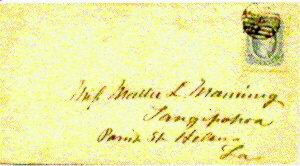 Miss Mattie L. Manning
Tangipahoa
Parish St Helena
La